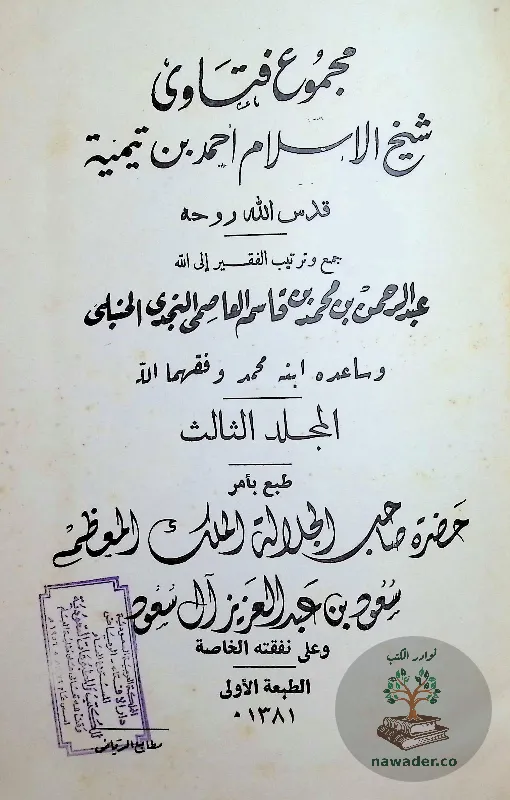 مجموع فتاوى
شيخ الإسلام أحمد بن تيمية
قدس الله روحه
جمع وترتيب الفقير إلى الله
عبد الرحمن بن محمد بن قاسم العاصمي النجدي الحنبلي
وساعده ابنه محمد وفقهما الله
المجلد الثالث
طبع بأمر
حضرة صاحب الجلالة الملك المعظم
سعود بن عبد العزيز آل سعود
وعلى نفقته الخاصة
الطبعة الأولى
١٣٨١ ه
مطابع الرياض
نوادر الكتب
nawader.co